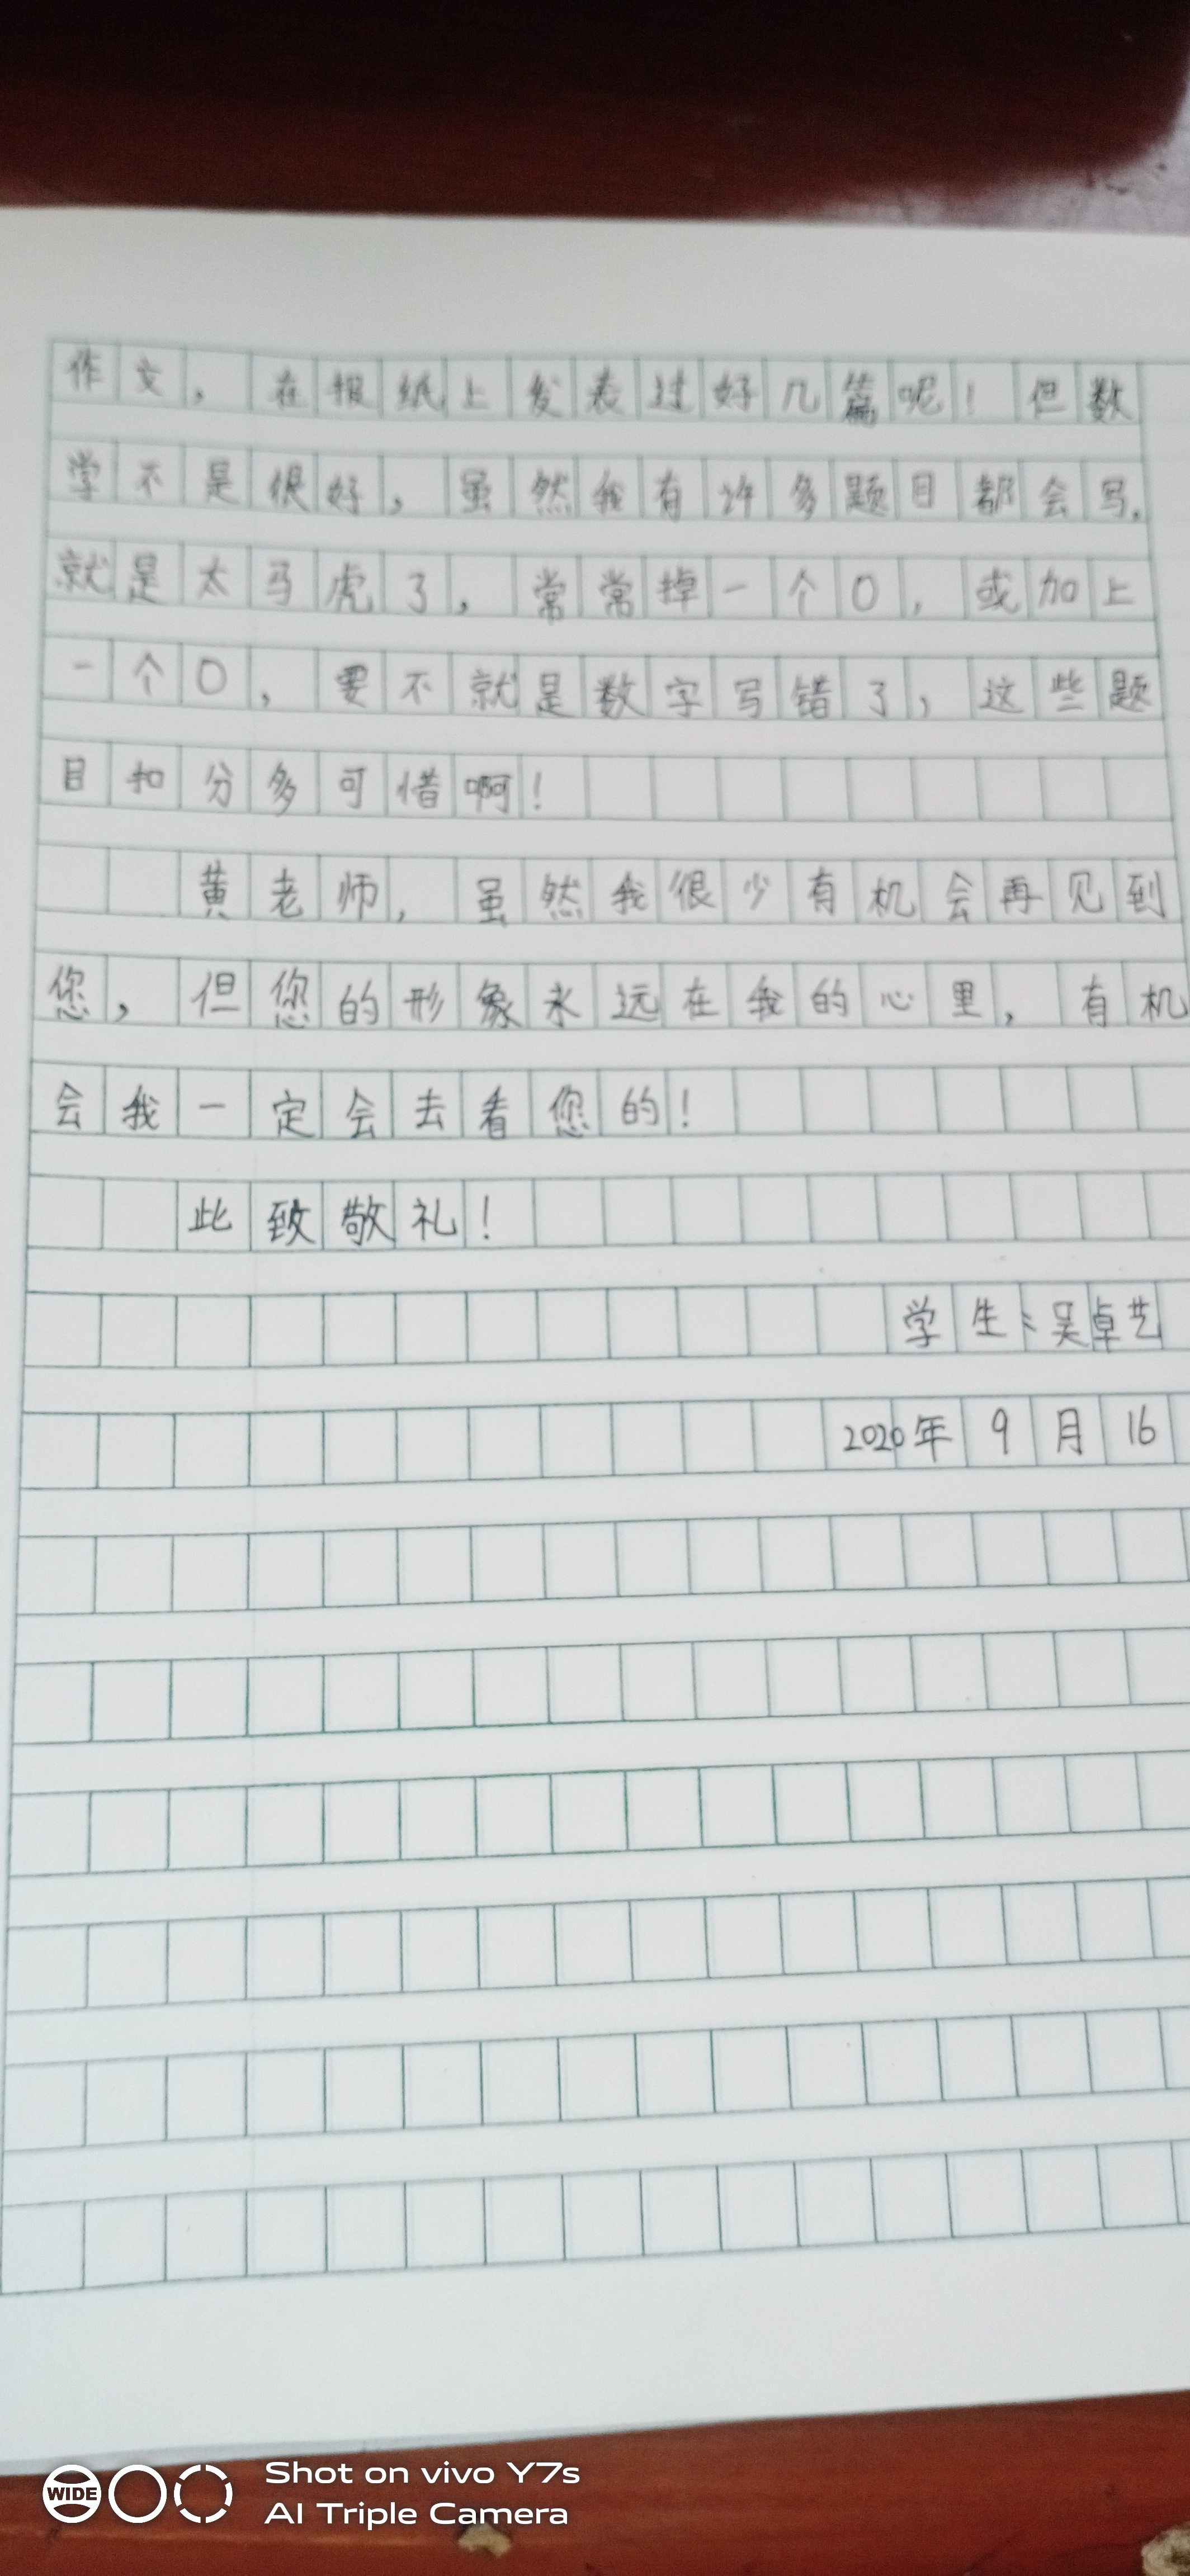 作文，在报纸上发表过好几篇呢！但数
学不是很好，虽然我有许多题目都会写，
就是太马虎了，常常掉一个0，或加上
一个0，要不就是数字写错了，这些题
目扣分多可惜啊！
黄老师，虽然我很少有机会再见到
您，但您的形象永远在我的心里，有机
会我一定会去看您的！
此致敬礼！
学生：吴卓艺
2020年9月16
WIDE
Shot on vivo Y7s
AI Triple Camera